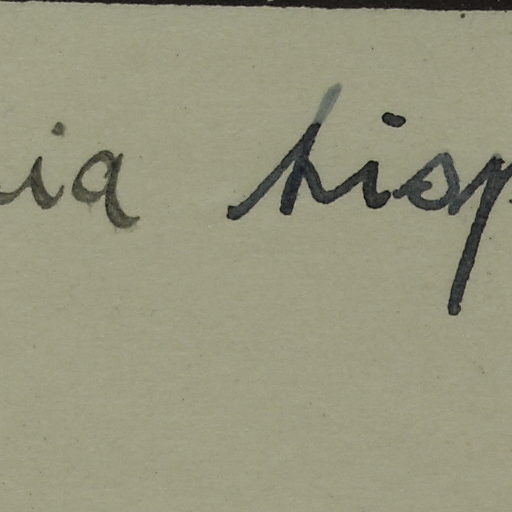 ia hisp